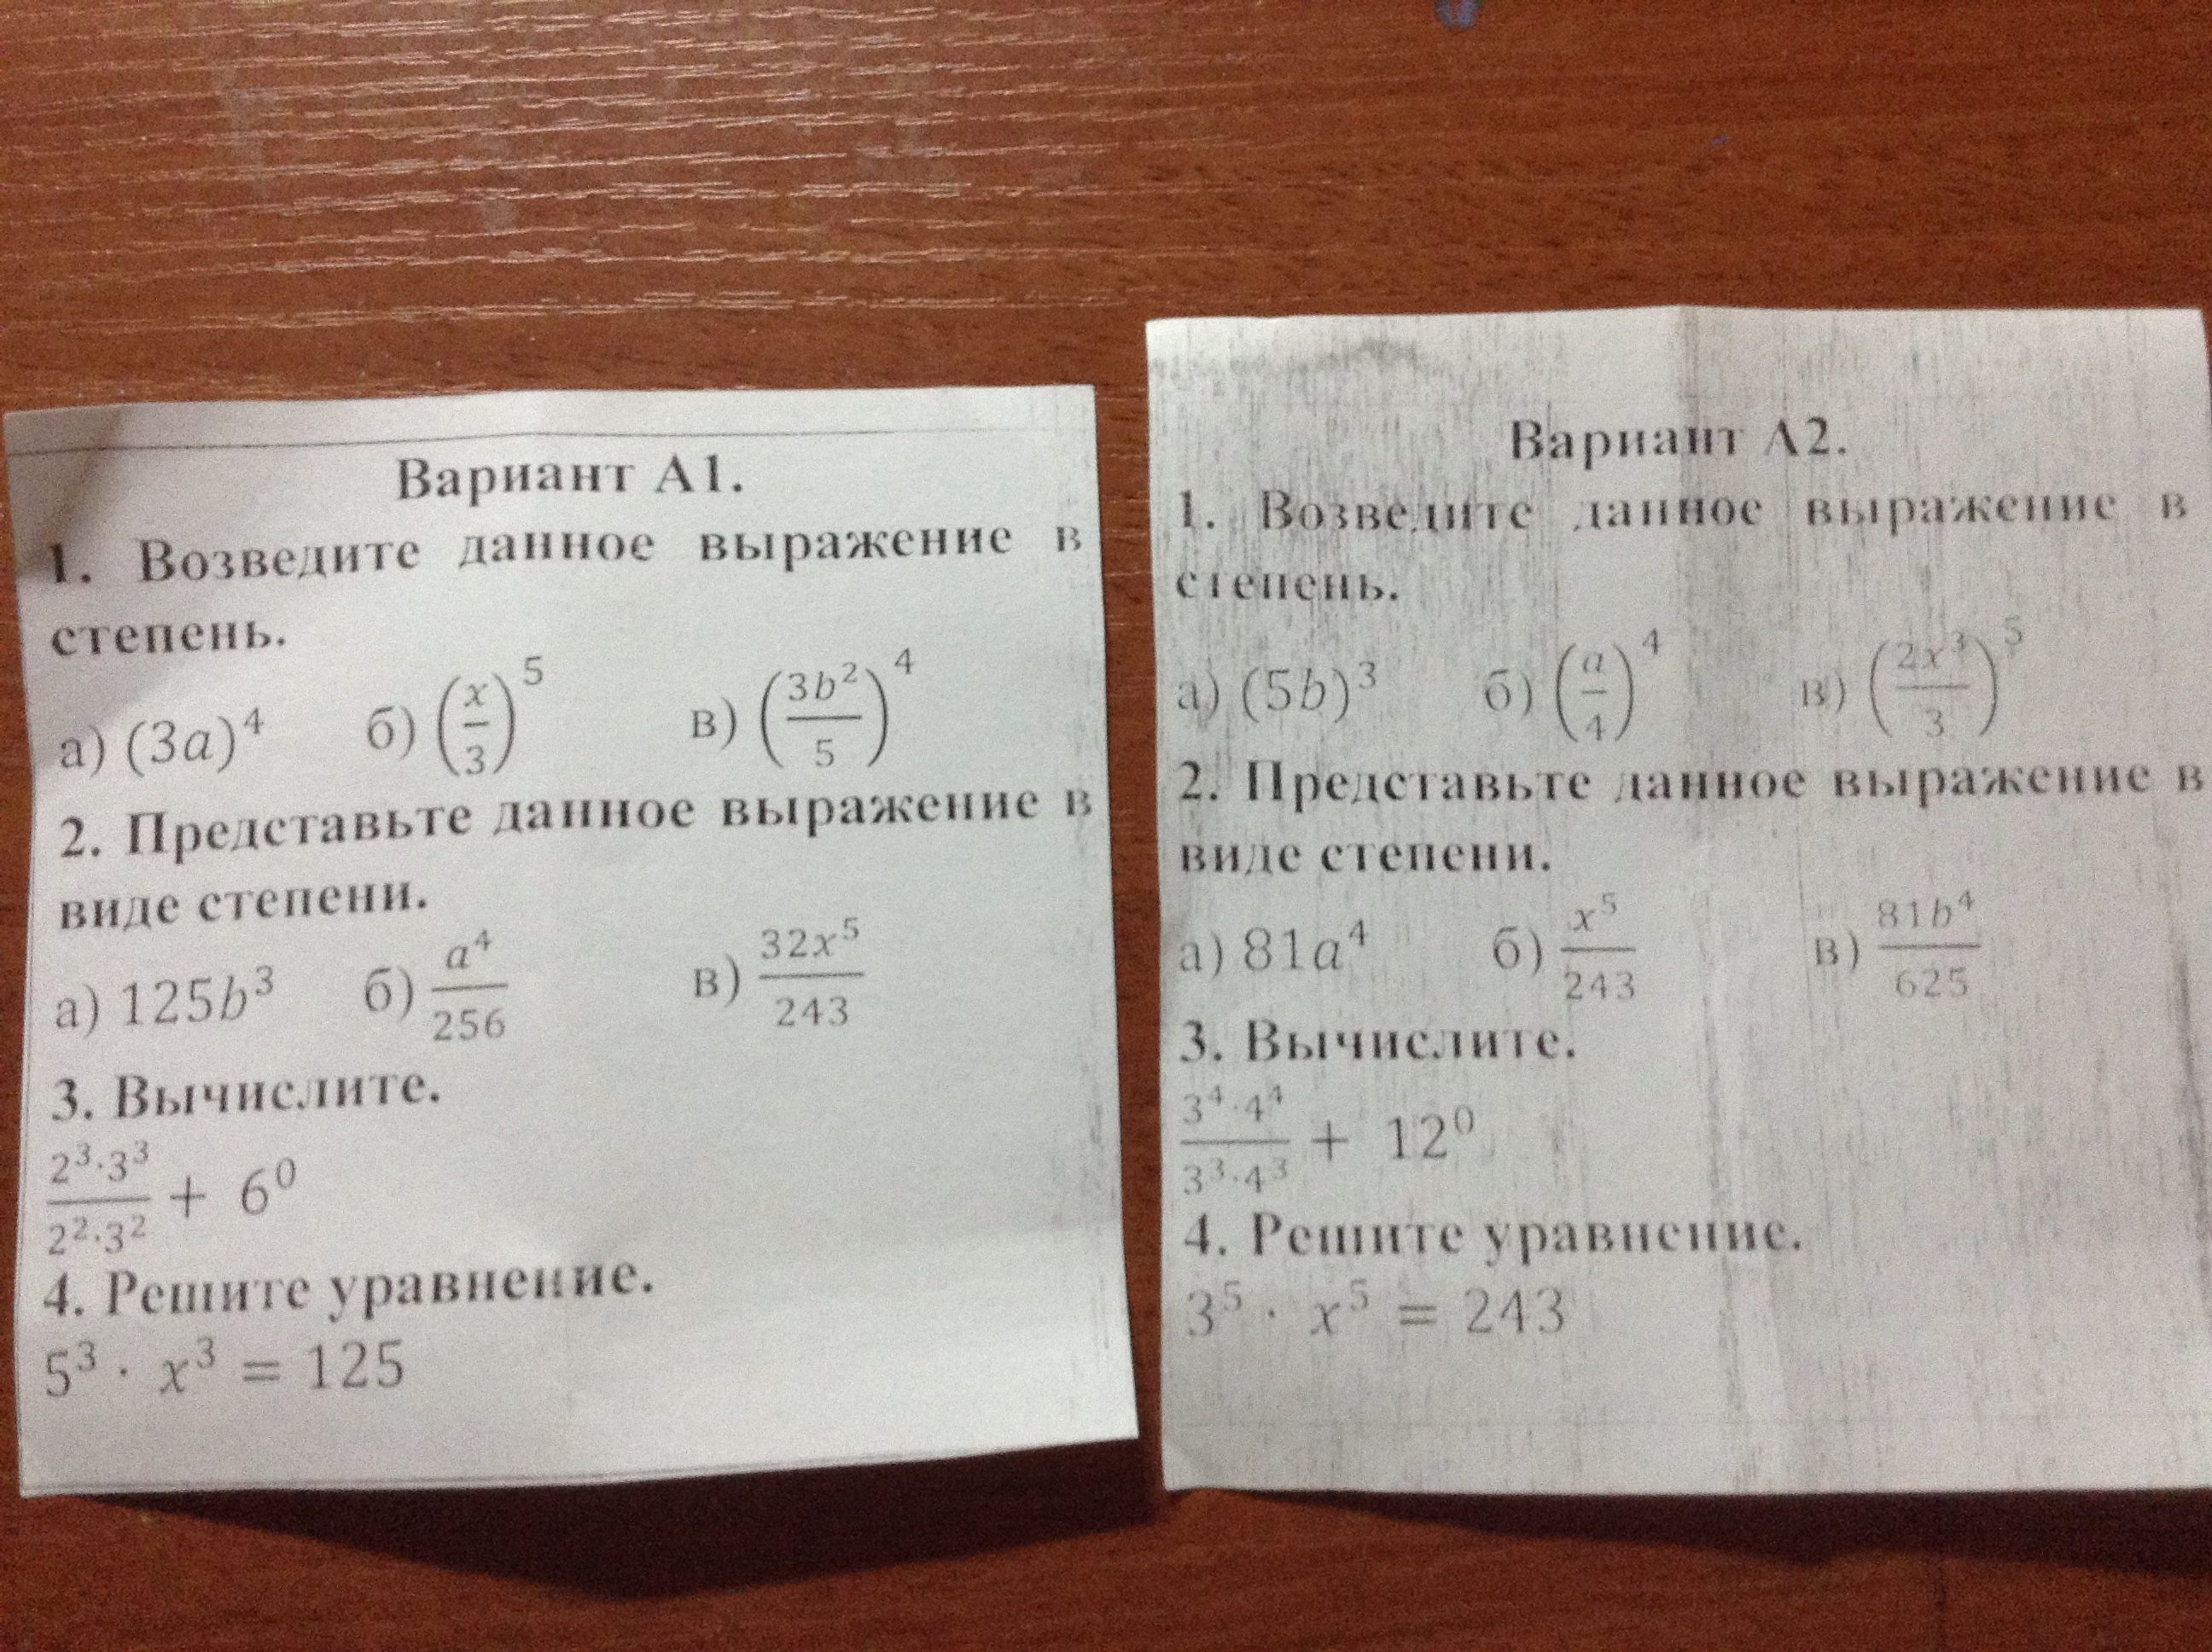 Вариант А1.
1. Возведите данное выражение в
степень.
а) (3a)⁴ б) (x/3)⁵ в) (3b²/5)⁴
2. Представьте данное выражение в
виде степени.
а) 125b³ б) a⁴/256 в) 32x⁵/243
3. Вычислите.
2³·3³/2²·3² + 6⁰
4. Решите уравнение.
5³ · x³ = 125
Вариант А2.
1. Возведите данное выражение в
степень.
а) (5b)³ б) (a/4)⁴ в) (2x³/3)⁵
2. Представьте данное выражение в
виде степени.
а) 81a⁴ б) x⁵/243 в) 81b⁴/625
3. Вычислите.
3⁴·4⁴/3³·4³ + 12⁰
4. Решите уравнение.
3⁵ · x⁵ = 243